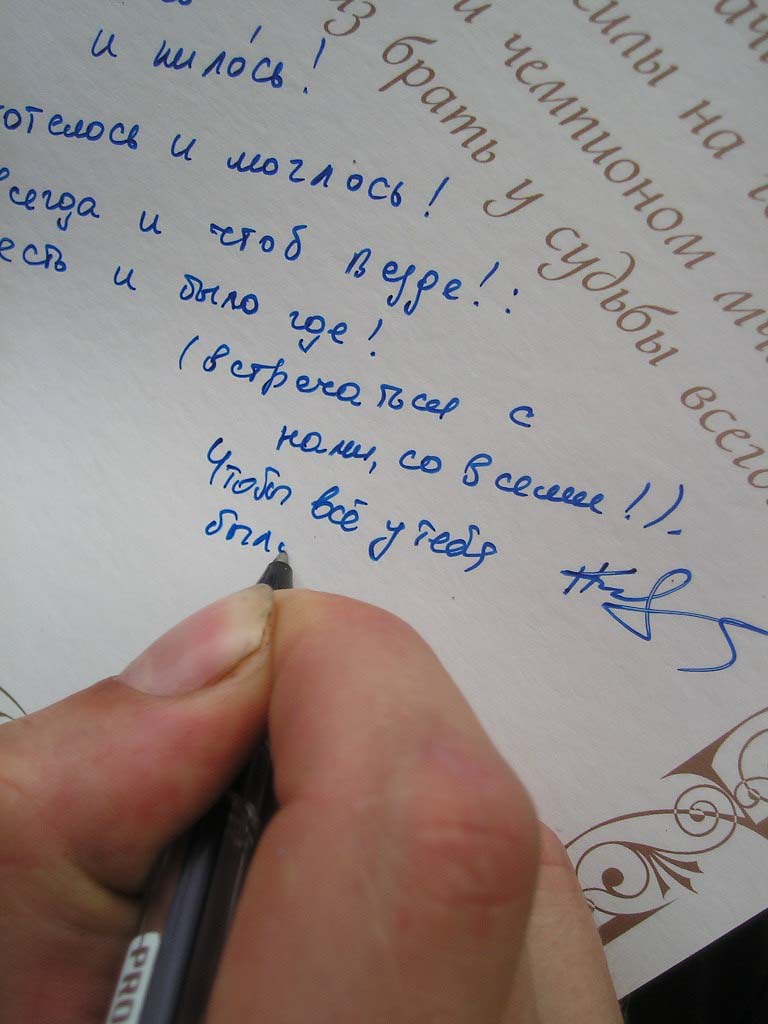 и пилось!
хотелось и моглось!
всегда и чтоб везде!:
есть и было где!
(встречаться с
нами, со всеми!).
Чтобы всё у тебя
было
силы на
и чемпионом
из брать у судьбы всего
PRO